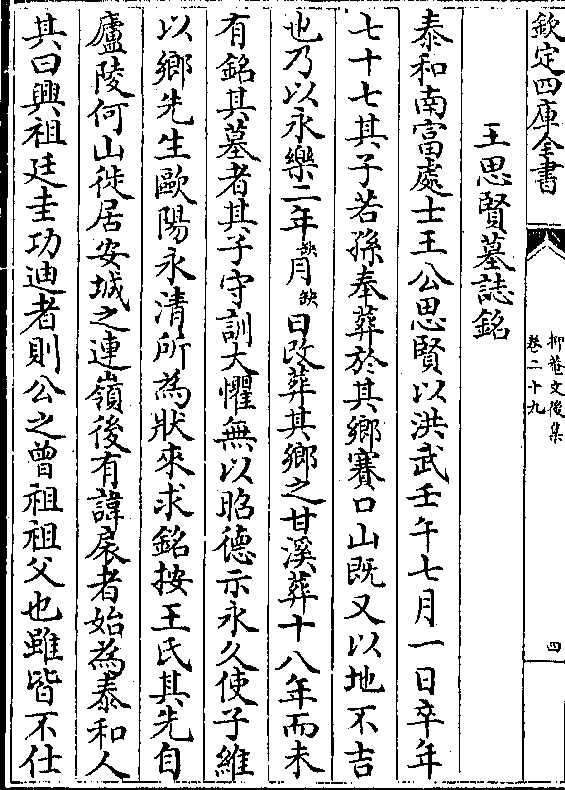 欽定四庫全書
抑菴文後集
卷二十九
四
王思賢墓誌銘
泰和南富處士王公思賢以洪武壬午七月一日卒年
七十七其子若孫奉葬於其鄉賽口山既又以地不吉
也乃以永樂二年缺月缺日改葬其鄉之甘溪葬十八年而未
有銘其墓者其子守訓大懼無以昭德示永久使子維
以鄉先生歐陽永清所為狀來求銘按王氏其先自
廬陵何山徙居安城之連嶺後有諱扆者始為泰和人
其曰興祖廷圭功迪者則公之曾祖祖父也雖皆不仕